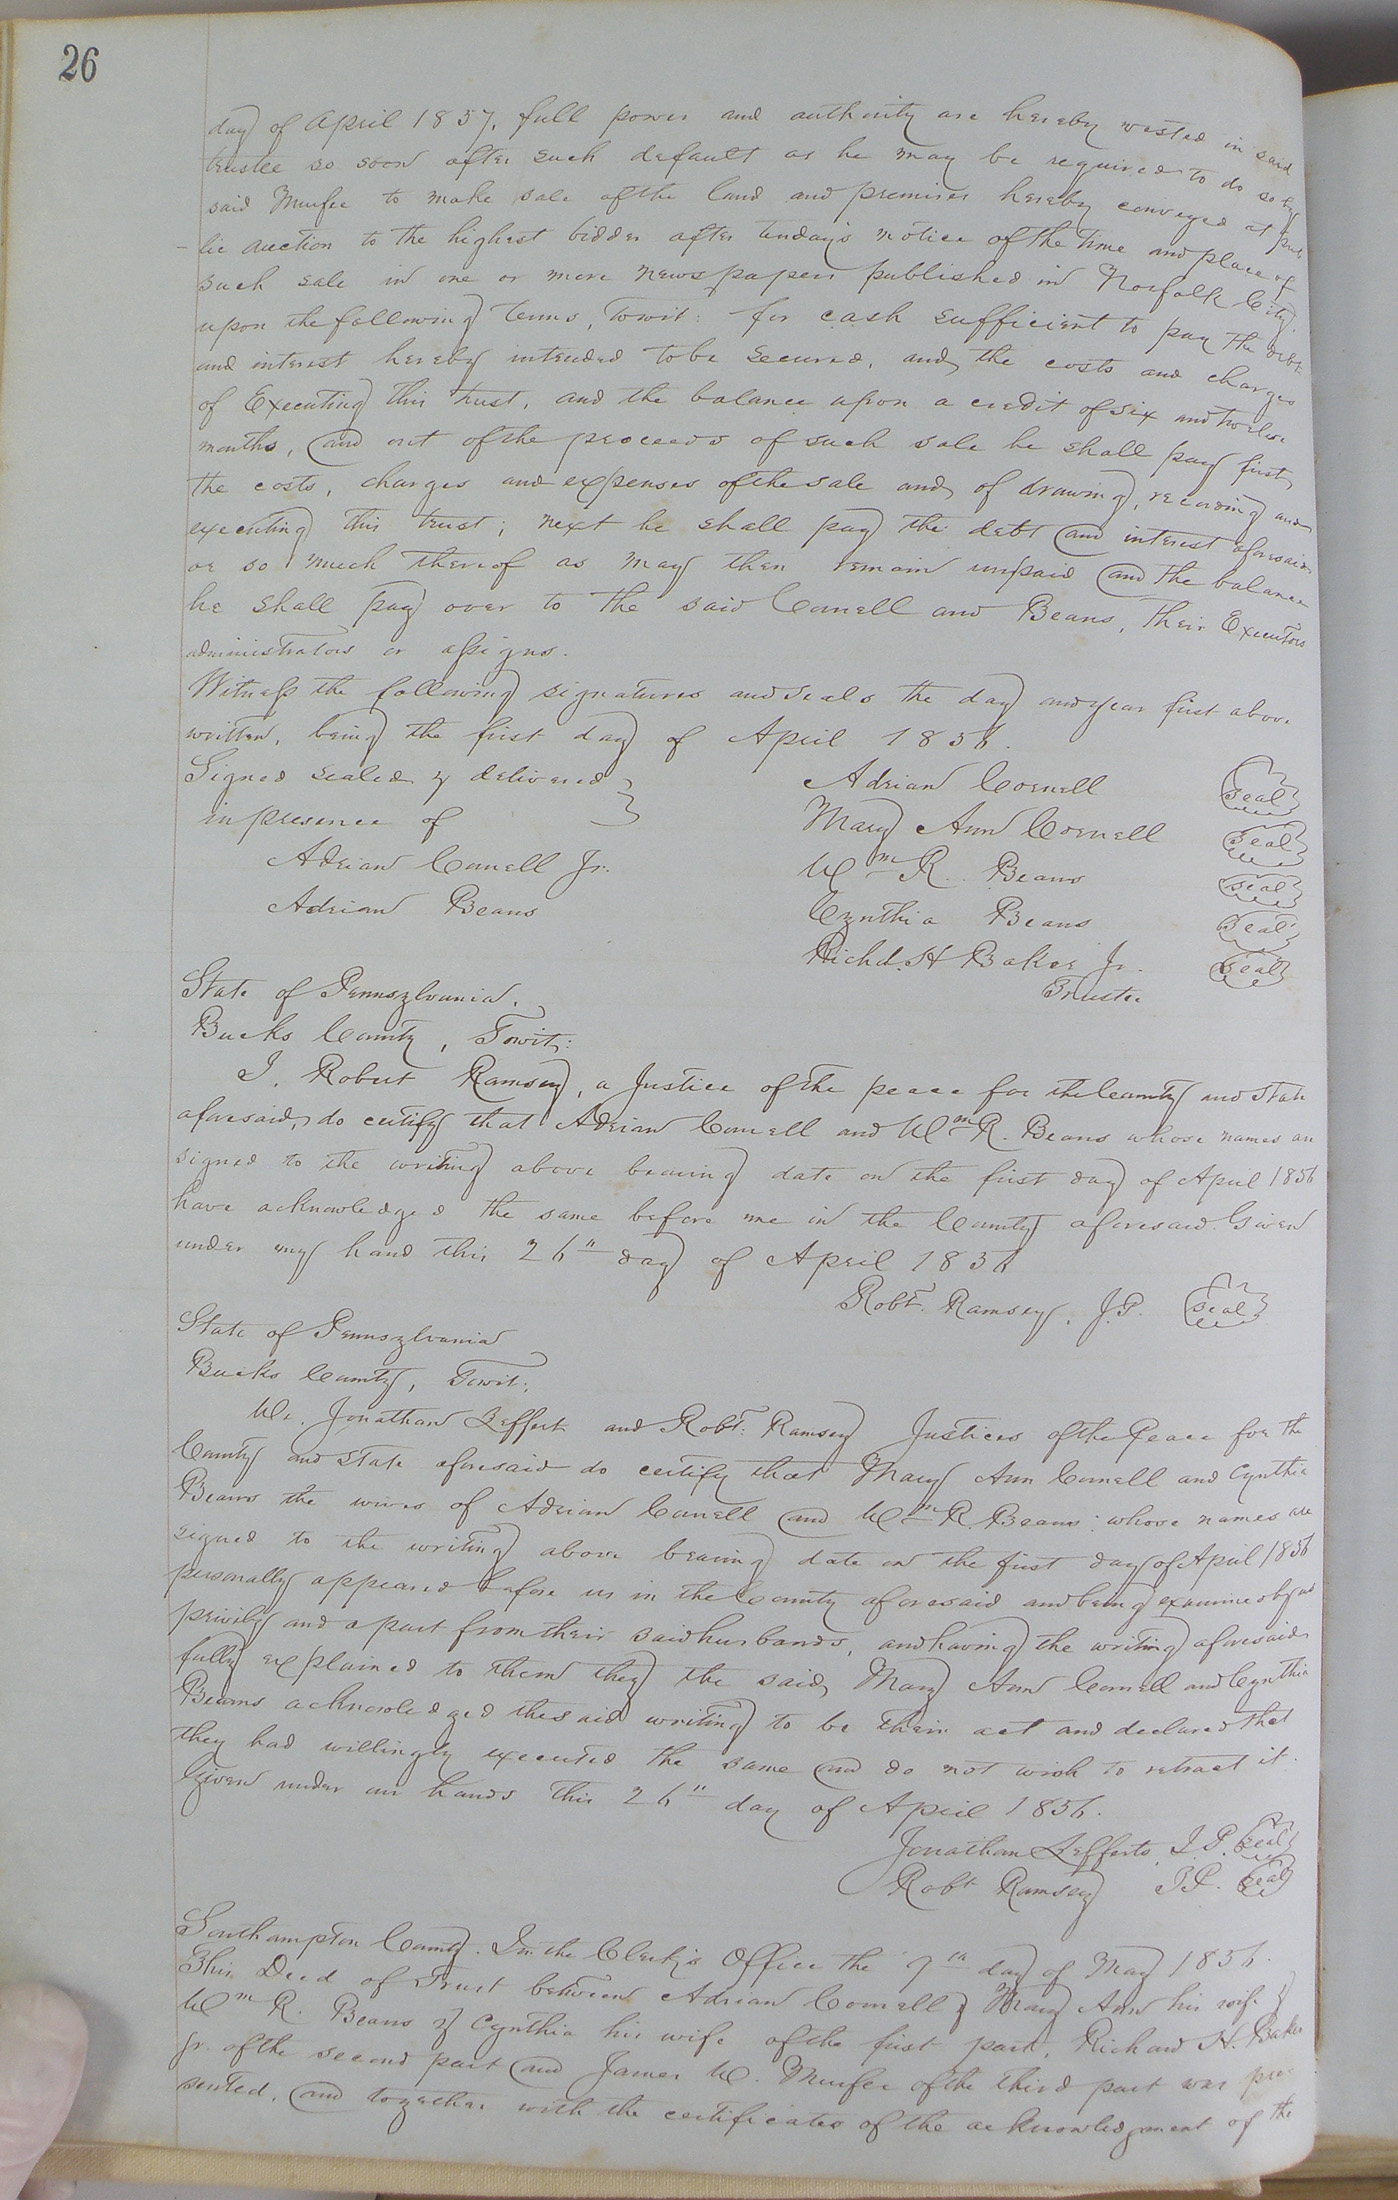 26
day of April 1857, full power and authority are hereby vested in said
trustee so soon after such default as he may be required to do so by
said Murfee to make sale of the land and premises hereby conveyed at pub
lic auction to the highest bidder after ten days notice of the time and place of
such sale in one or more newspapers published in Norfolk City.
upon the following terms, Towit: for cash sufficient to pay the debt
and interest hereby intended to be secured, and the costs and charges
of Executing this trust, and the balance upon a credit of six and twelve
months, and out of the proceeds of such sale he shall pay first,
the costs, charges and expenses of the sale and of drawing, recording and
executing this trust; next he shall pay the debt and interest aforesaid
or so much thereof as may then remain unpaid and the balance
he shall pay over to the said Cornell and Beans, their Executors
administrators or assigns.
Witness the following signatures and seals the day and year first above
written, being the first day of April 1856.
Signed sealed & delivered
in presence of
Adrian Cornell Jr.
Adrian Beans
Adrian Cornell seal
Mary Ann Cornell seal
Wm R. Beans seal
Cynthia Beans seal
Richd. H Baker Jr. seal
Trustee
State of Pennsylvania,
Bucks County, Towit:
I, Robert Ramsey, a Justice of the peace for the County and State
aforesaid, do certify that Adrian Cornell and Wm R. Beans whose names are
signed to the writing above bearing date on the first day of April 1856
have acknowledged the same before me in the County aforesaid. Given
under my hand this 26" day of April 1856
Robt. Ramsey, J.P. seal
State of Pennsylvania
Bucks County, Towit:
We, Jonathan Leffert and Robt: Ramsey Justices of the Peace for the
County and State aforesaid do certify that Mary Ann Cornell and Cynthia
Beans the wives of Adrian Cornell and Wm R. Beans whose names are
signed to the writing above bearing date on the first day of April 1856
personally appeared before us in the County aforesaid and being examined by us
privily and apart from their said husbands, and having the writing aforesaid
fully explained to them they the said, Mary Ann Cornell and Cynthia
Beans acknowledged the said writing to be their act and declared that
they had willingly executed the same and do not wish to retract it.
Given under our hands this 26" day of April 1856.
Jonathan Lefferts, J.P. seal
Robt Ramsey J.P. seal
Southampton County. In the Clerk's Office the 7th day of May 1856.
This Deed of Trust between Adrian Cornell & Mary Ann his wife &
Wm R. Beans & Cynthia his wife of the first part, Richard H. Baker
Jr. of the second part and James W. Murfee of the third part was pre
sented, and together with the certificates of the acknowledgment of the